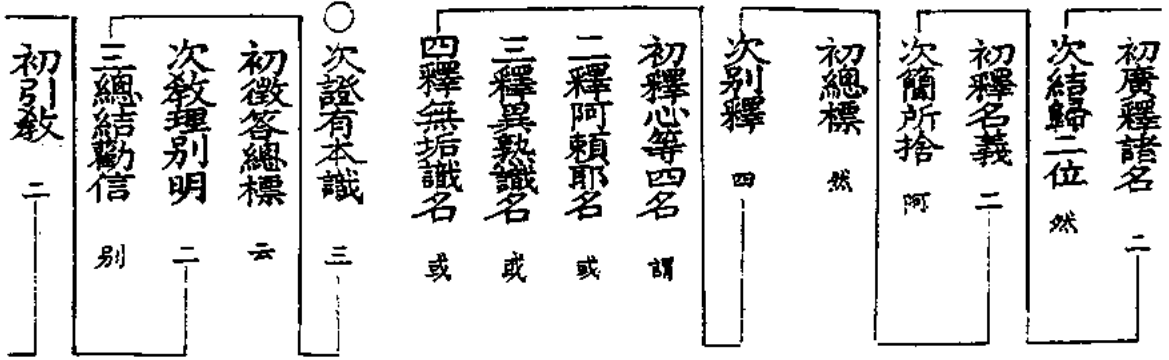 初廣釋諸名 二
次結歸二位 然
初釋名義 二
次簡所捨 阿
初總標 然
次別釋 四
初釋心等四名 謂
二釋阿賴耶名 或
三釋異熟識名 或
四釋無垢識名 或
○次證有本識 三
初徵答總標 云
次教理別明 二
三總結勸信 別
初引教 二